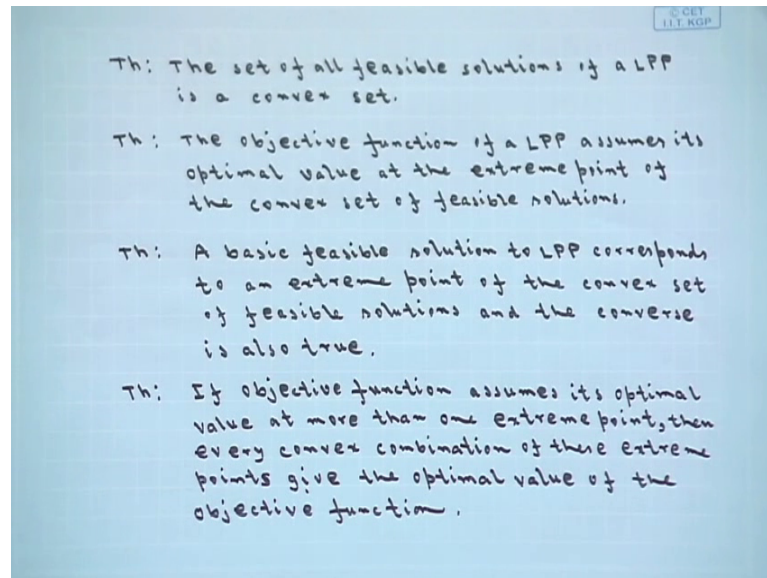 © CET
I.I.T. KGP
Th: The set of all feasible solutions of a LPP
is a convex set.
Th: The objective function of a LPP assumes its
optimal value at the extreme point of
the convex set of feasible solutions.
Th: A basic feasible solution to LPP corresponds
to an extreme point of the convex set
of feasible solutions and the converse
is also true.
Th: If objective function assumes its optimal
value at more than one extreme point, then
every convex combination of these extreme
points give the optimal value of the
objective function.